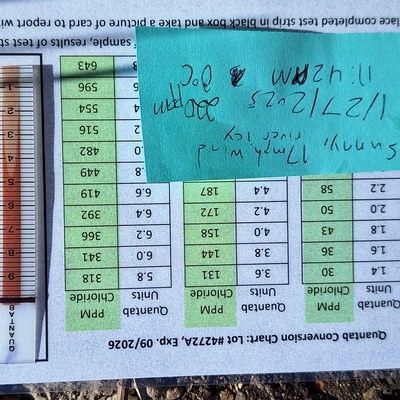 Quantab Conversion Chart: Lot #4272A, Exp. 09/2026
Quantab Units PPM Chloride Quantab Units PPM Chloride Quantab Units PPM Chloride
1.4 30 3.6 131 5.8 318
1.6 36 3.8 144 6.0 341
1.8 43 4.0 158 6.2 366
2.0 50 4.2 172 6.4 392
2.2 58 4.4 187 6.6 419
449
482
516
554
596
643
Sunny, 17mph wind
river icy
1/27/2025 220 ppm
11:42 AM 0°C
sample, results of test
completed test strip in black box and take a picture of card to report
QUANTAB
9
8
7
6
5
4
3
2
1